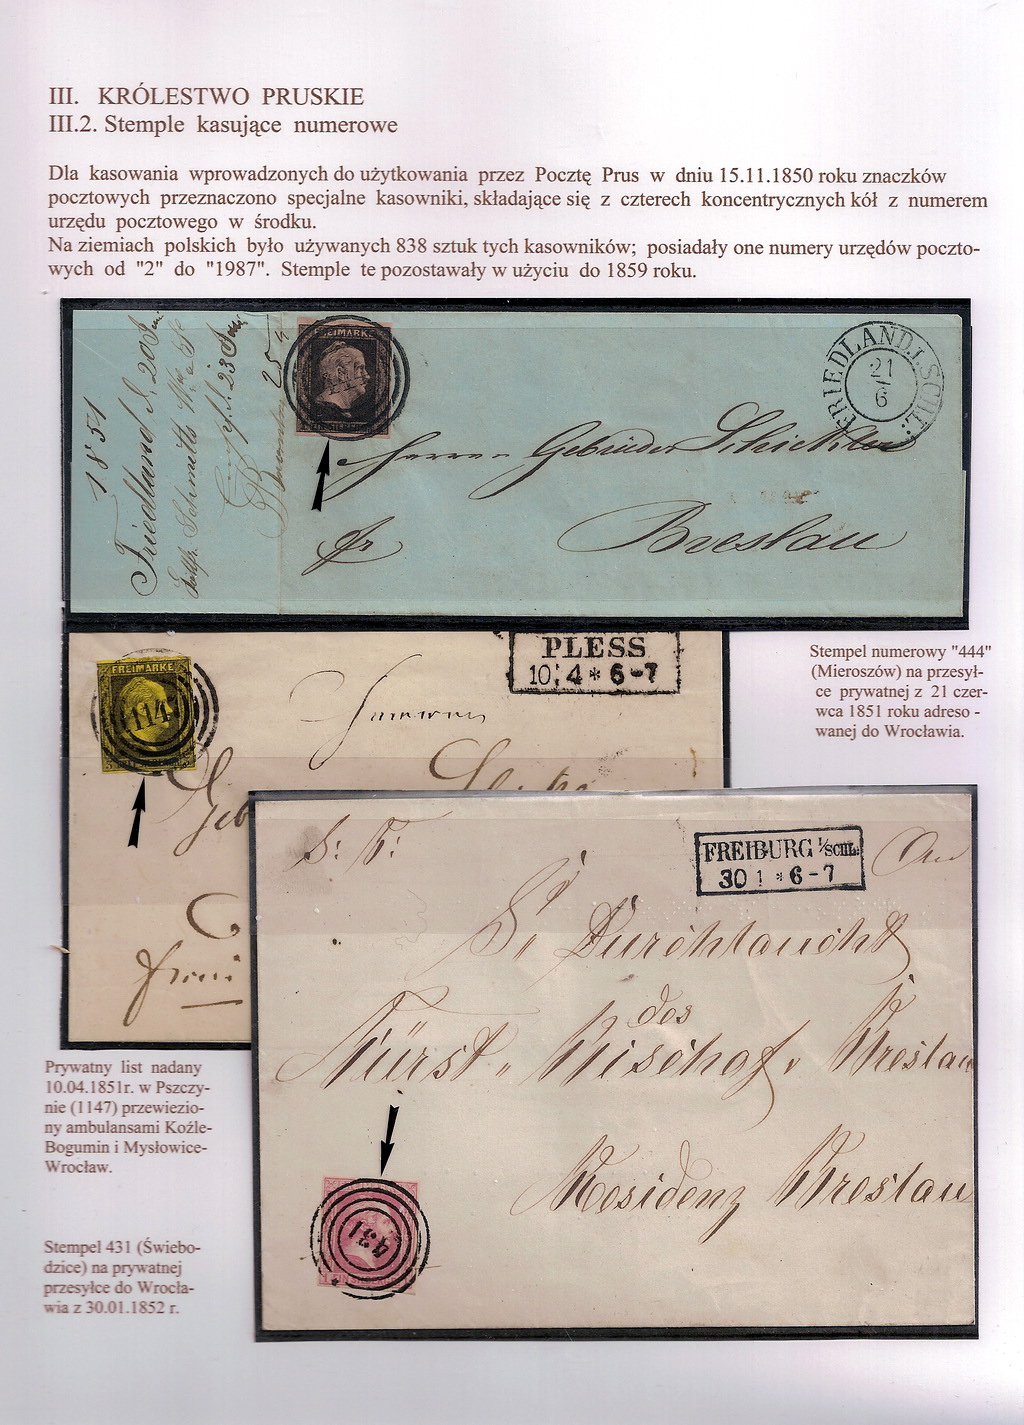 III. KRÓLESTWO PRUSKIE
III.2. Stemple kasujące numerowe
Dla kasowania wprowadzonych do użytkowania przez Pocztę Prus w dniu 15.11.1850 roku znaczków
pocztowych przeznaczono specjalne kasowniki, składające się z czterech koncentrycznych kół z numerem
urzędu pocztowego w środku.
Na ziemiach polskich było używanych 838 sztuk tych kasowników; posiadały one numery urzędów poczto-
wych od "2" do "1987". Stemple te pozostawały w użyciu do 1859 roku.
1851
Friedland d. 20
Schmidt
23
25
FREIMARKE
444
FRIEDLAND I. SCHL:
21
6
Herren Gebrüder Schickler
fr
Breslau
Stempel numerowy "444"
(Mieroszów) na przesył-
ce prywatnej z 21 czer-
wca 1851 roku adreso -
wanej do Wrocławia.
FREIMARKE
1147
PLESS
10 4 * 6-7
Geb
Prywatny list nadany
10.04.1851r. w Pszczy-
nie (1147) przewiezio-
ny ambulansami Koźle-
Bogumin i Mysłowice-
Wrocław.
FREIBURG I/SCHL:
30 1 * 6-7
An
Sr Durchlaucht
des
Fürst Bischof v Breslau
Residenz Breslau
431
Stempel 431 (Świebo-
dzice) na prywatnej
przesyłce do Wrocła-
wia z 30.01.1852 r.